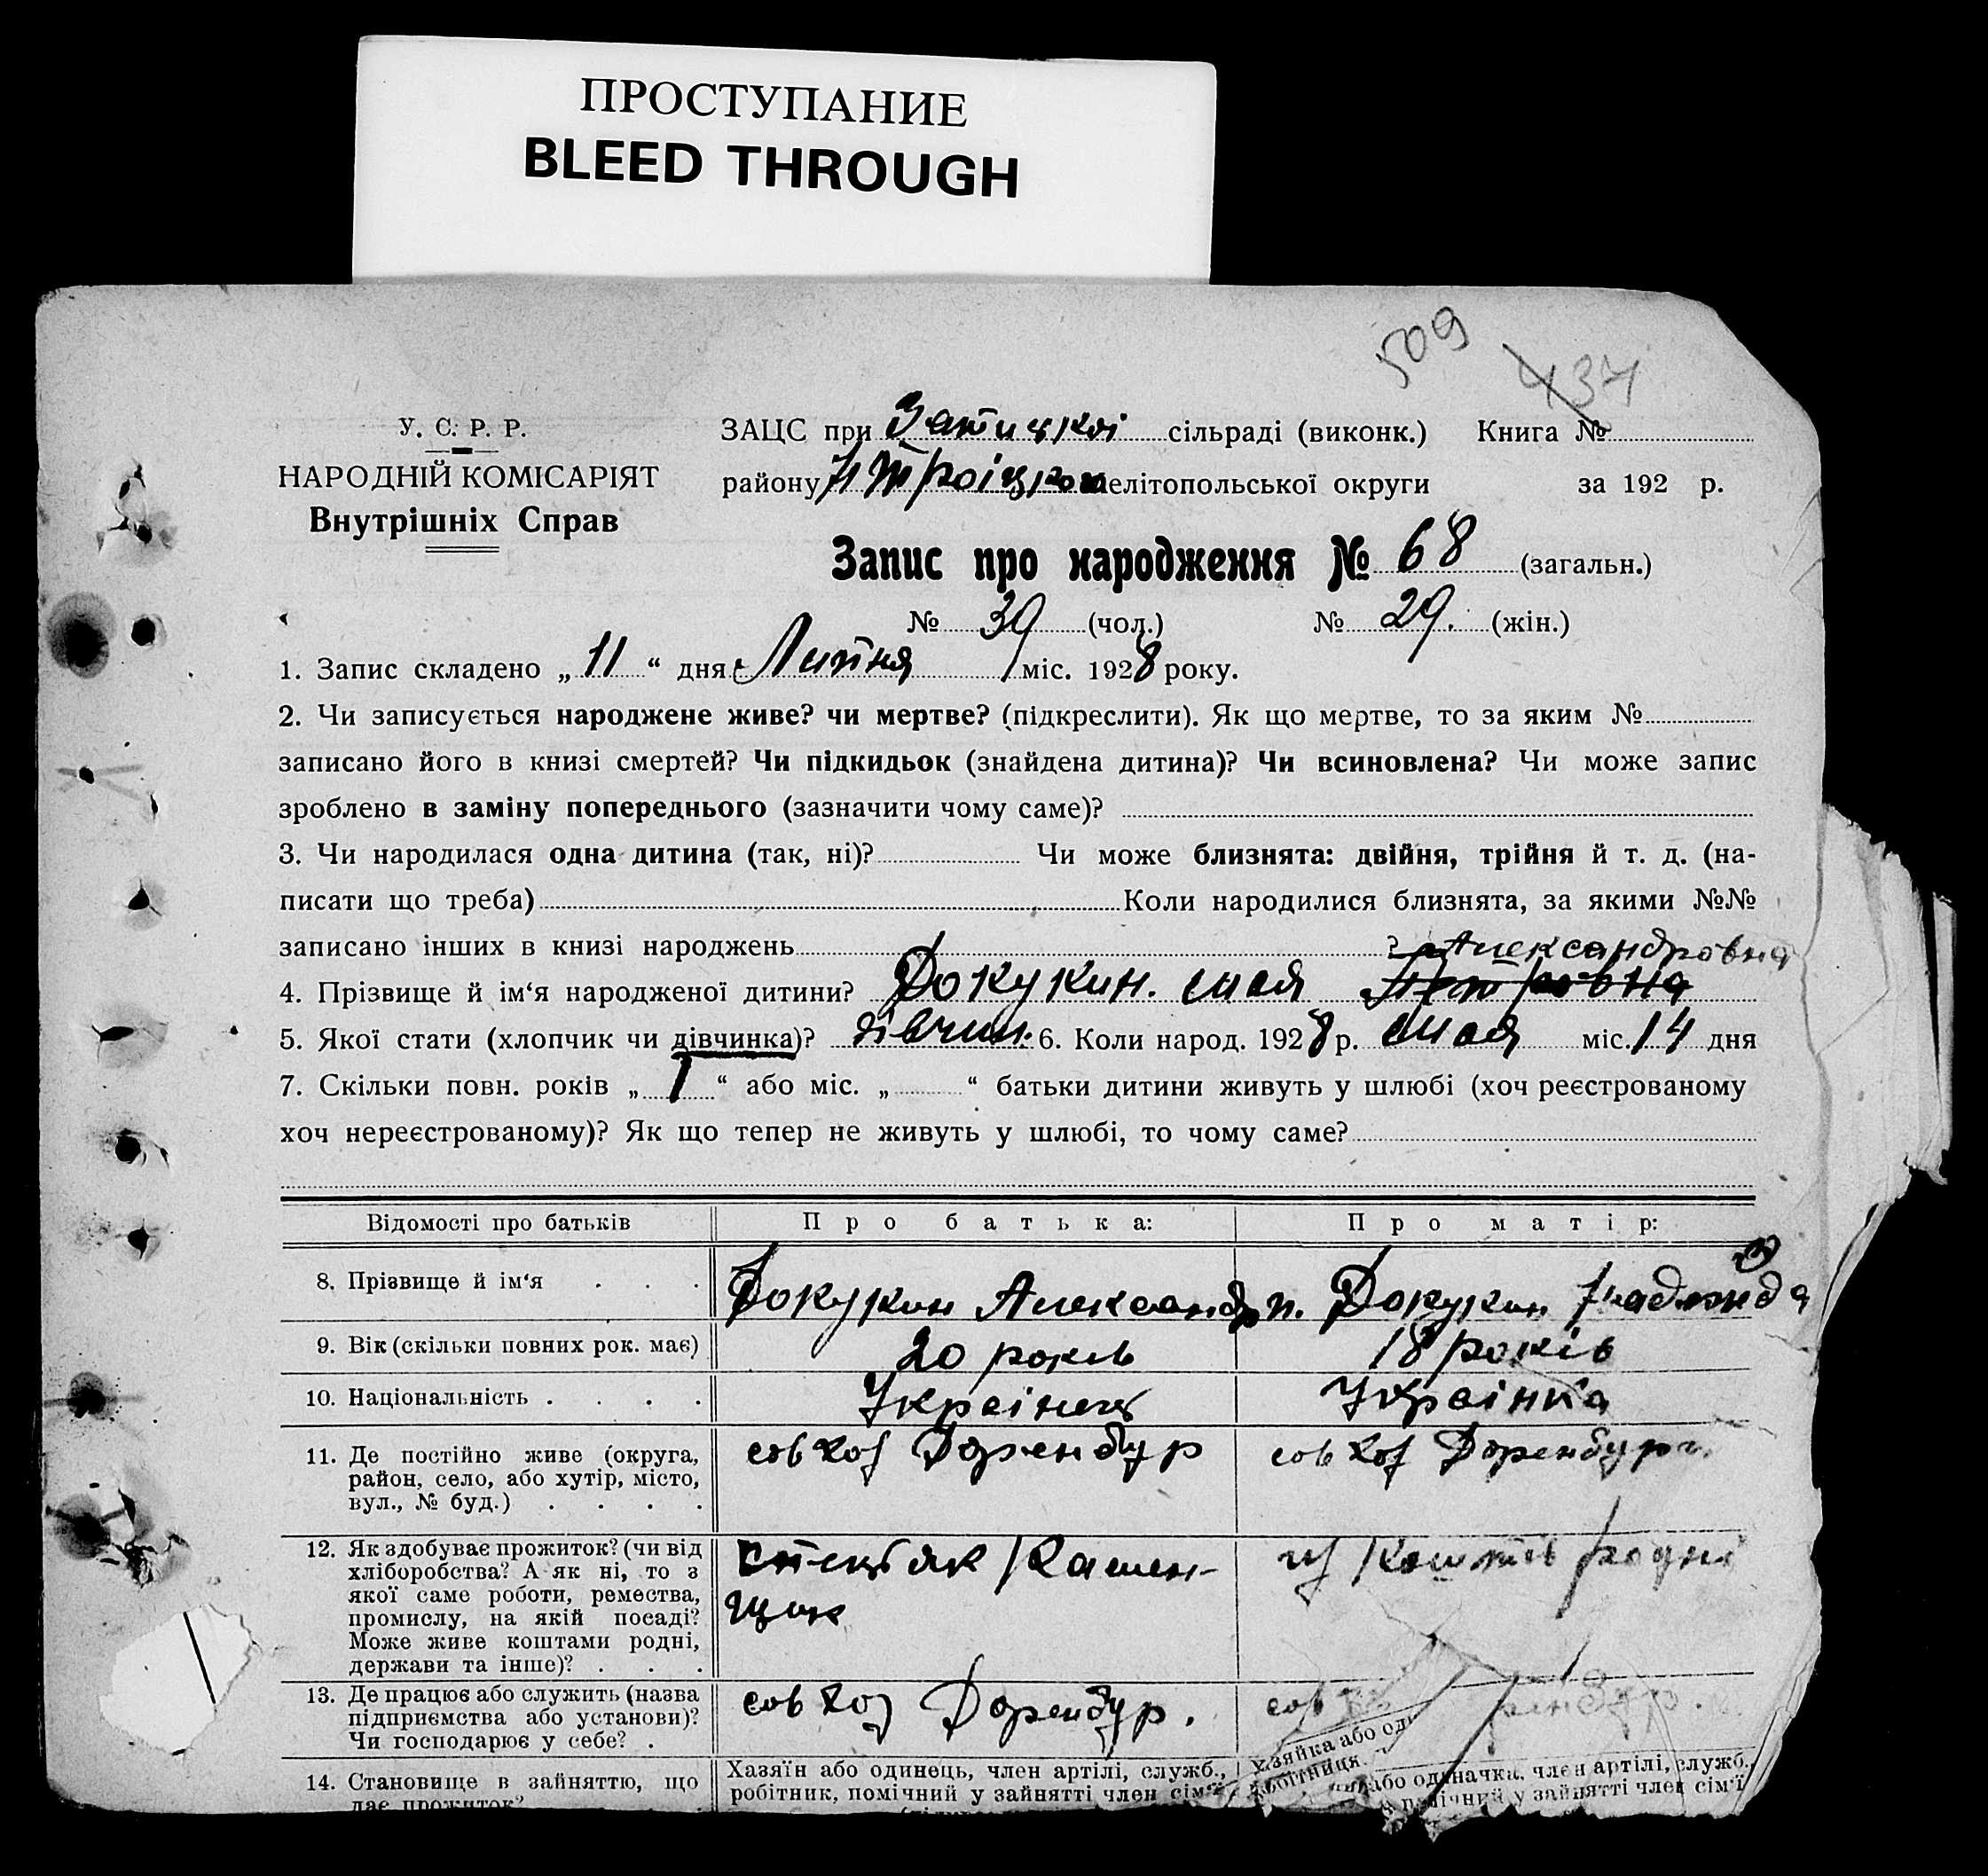 ПРОСТУПАНИЕ
BLEED THROUGH
509
434
У. С. Р. Р.
НАРОДНІЙ КОМІСАРІЯТ
Внутрішніх Справ
ЗАЦС при сільраді (виконк.) Книга №
району Н Троіцкого Мелітопольської округи за 192 р.
Запис про народження № 68 (загальн.)
№ 39 (чол.) № 29. (жін.)
1. Запис складено „ 11 “ дня Липня міс. 1928 року.
2. Чи записується народжене живе? чи мертве? (підкреслити). Як що мертве, то за яким №
записано його в книзі смертей? Чи підкидьок (знайдена дитина)? Чи всиновлена? Чи може запис
зроблено в заміну попереднього (зазначити чому саме)?
3. Чи народилася одна дитина (так, ні)? Чи може близнята: двійня, трійня й т. д. (на-
писати що треба) Коли народилися близнята, за якими №№
записано інших в книзі народжень ? Александровна
4. Прізвище й ім‘я народженої дитини? Докукин. мая Петровна
5. Якої стати (хлопчик чи дівчинка)? дівчин. 6. Коли народ. 1928 р. мая міс. 14 дня
7. Скільки повн. років „ 1 “ або міс. „ “ батьки дитини живуть у шлюбі (хоч реєстрованому
хоч нереєстрованому)? Як що тепер не живуть у шлюбі, то чому саме?
Відомості про батьків Про батька: Про матір:
8. Прізвище й ім‘я Докукин Александр п. Докукин Надежда
9. Вік (скільки повних рок. має) 20 років 18 років
10. Національність Украінец Украінка
11. Де постійно живе (округа, район, село, або хутір, місто, вул., № буд.) совхоз Доренбур совхоз Доренбург.
12. Як здобуває прожиток? (чи від
хліборобства? А як ні, то з
якої саме роботи, ремества,
промислу, на якій посаді?
Може живе коштами родні,
держави та інше)?
Камен-
щик
из коштів родні
13. Де працює або служить (назва
підприємства або установи)?
Чи господарює у себе?
совхоз Доренбур.
сов ренбур.
14. Становище в зайняттю, що
дає прожиток?
Хазяїн або одинець, член артілі, служб.,
робітник, помічний у зайнятті член сім‘ї
Хазяйка або од
робітниця
або одиначка, член артілі, служб.,
помічний у зайнятті член сім‘ї